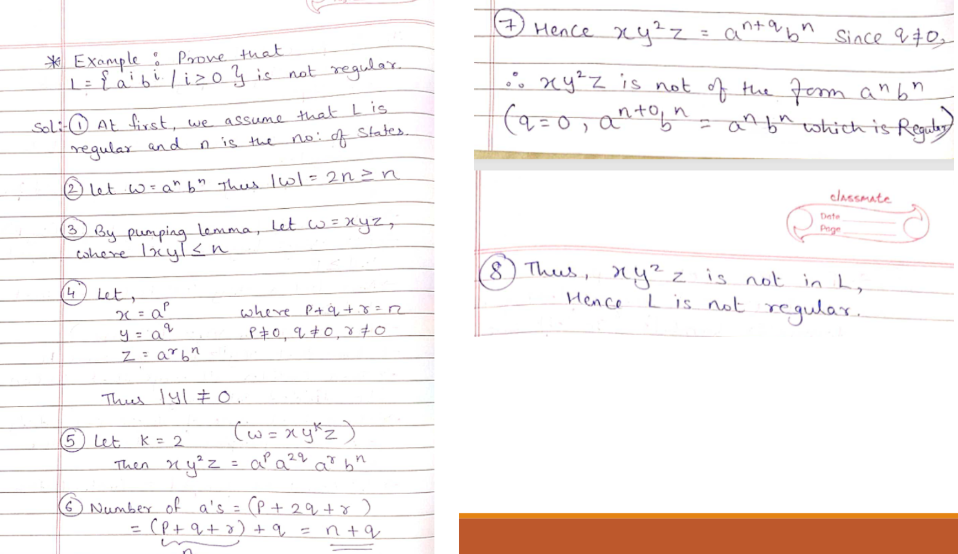 * Example : Prove that
L = { aⁱ bⁱ / i ≥ 0 } is not regular.
Sol:- ① At first, we assume that L is
regular and n is the no: of states.
② Let w = aⁿ bⁿ Thus |w| = 2n ≥ n
③ By pumping lemma, let w = xyz,
where |xy| ≤ n
④ Let,
x = aᵖ where p+q+r = n
y = a^q p≠0, q≠0, r≠0
z = aʳbⁿ
Thus |y| ≠ 0.
⑤ Let K = 2 (w = xyᵏz)
Then xy²z = aᵖ a^2q aʳ bⁿ
⑥ Number of a's = (p + 2q + r)
= (p + q + r) + q = n + q
n
⑦ Hence xy²z = a^n+q bⁿ Since q ≠ 0,
∴ xy²z is not of the form aⁿbⁿ
(q = 0, a^n+0 bⁿ = aⁿbⁿ which is Regular)
classmate
Date
Page
⑧ Thus, xy²z is not in L,
Hence L is not regular.